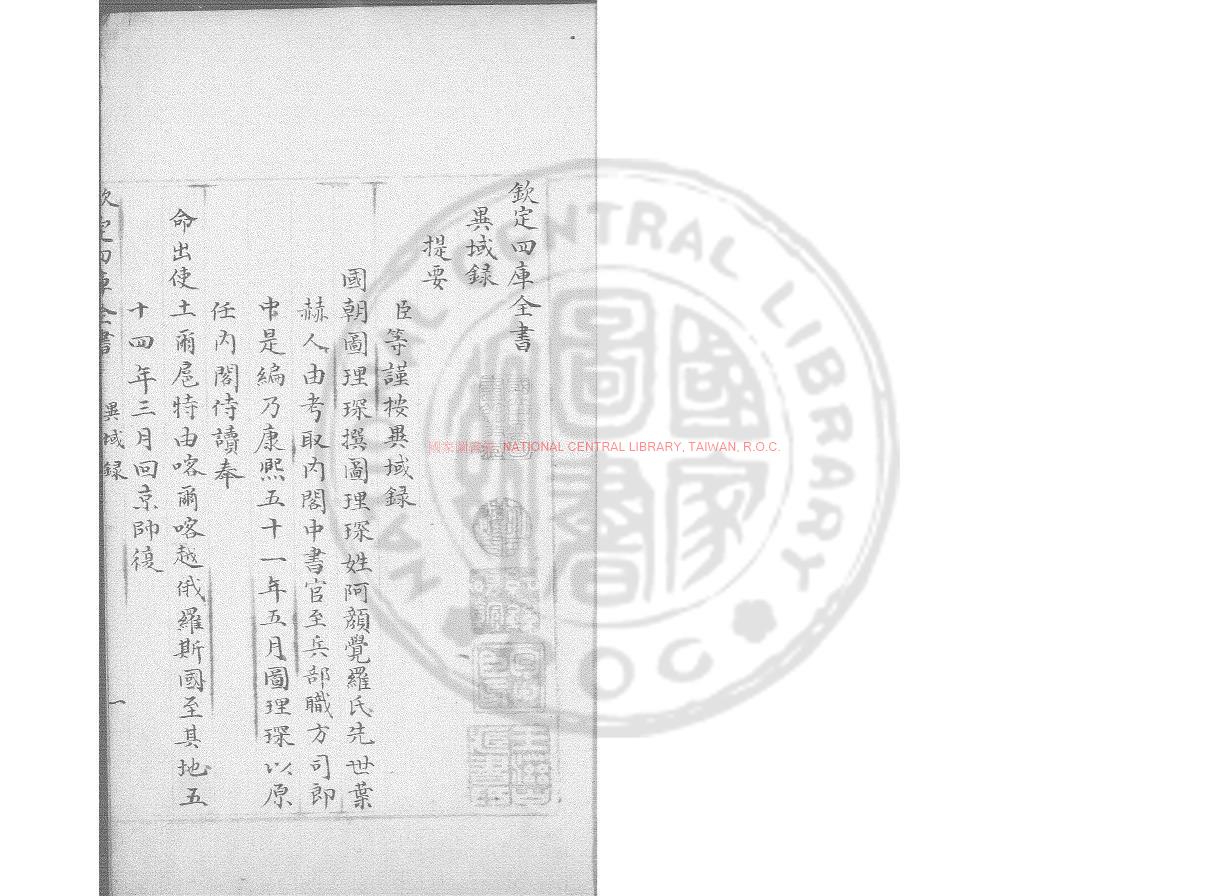 欽定四庫全書
異域錄
提要
臣等謹按異域錄
國朝圖理琛撰圖理琛姓阿顏覺羅氏先世葉
赫人由考取内閣中書官至兵部職方司郎
中是編乃康熙五十一年五月圖理琛以原
任内閣侍讀奉
命出使土爾扈特由喀爾喀越俄羅斯國至其地五
十四年三月回京師復
欽定四庫全書 異域錄 一
國家圖書館 NATIONAL CENTRAL LIBRARY, TAIWAN, R.O.C.
NATIONAL CENTRAL LIBRARY
ROC